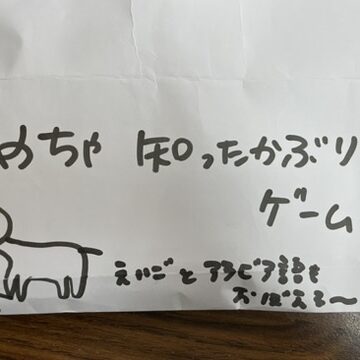 ゃめちゃ 知ったかぶり
ゲーム
えいごと アラビア語を
おぼえる〜